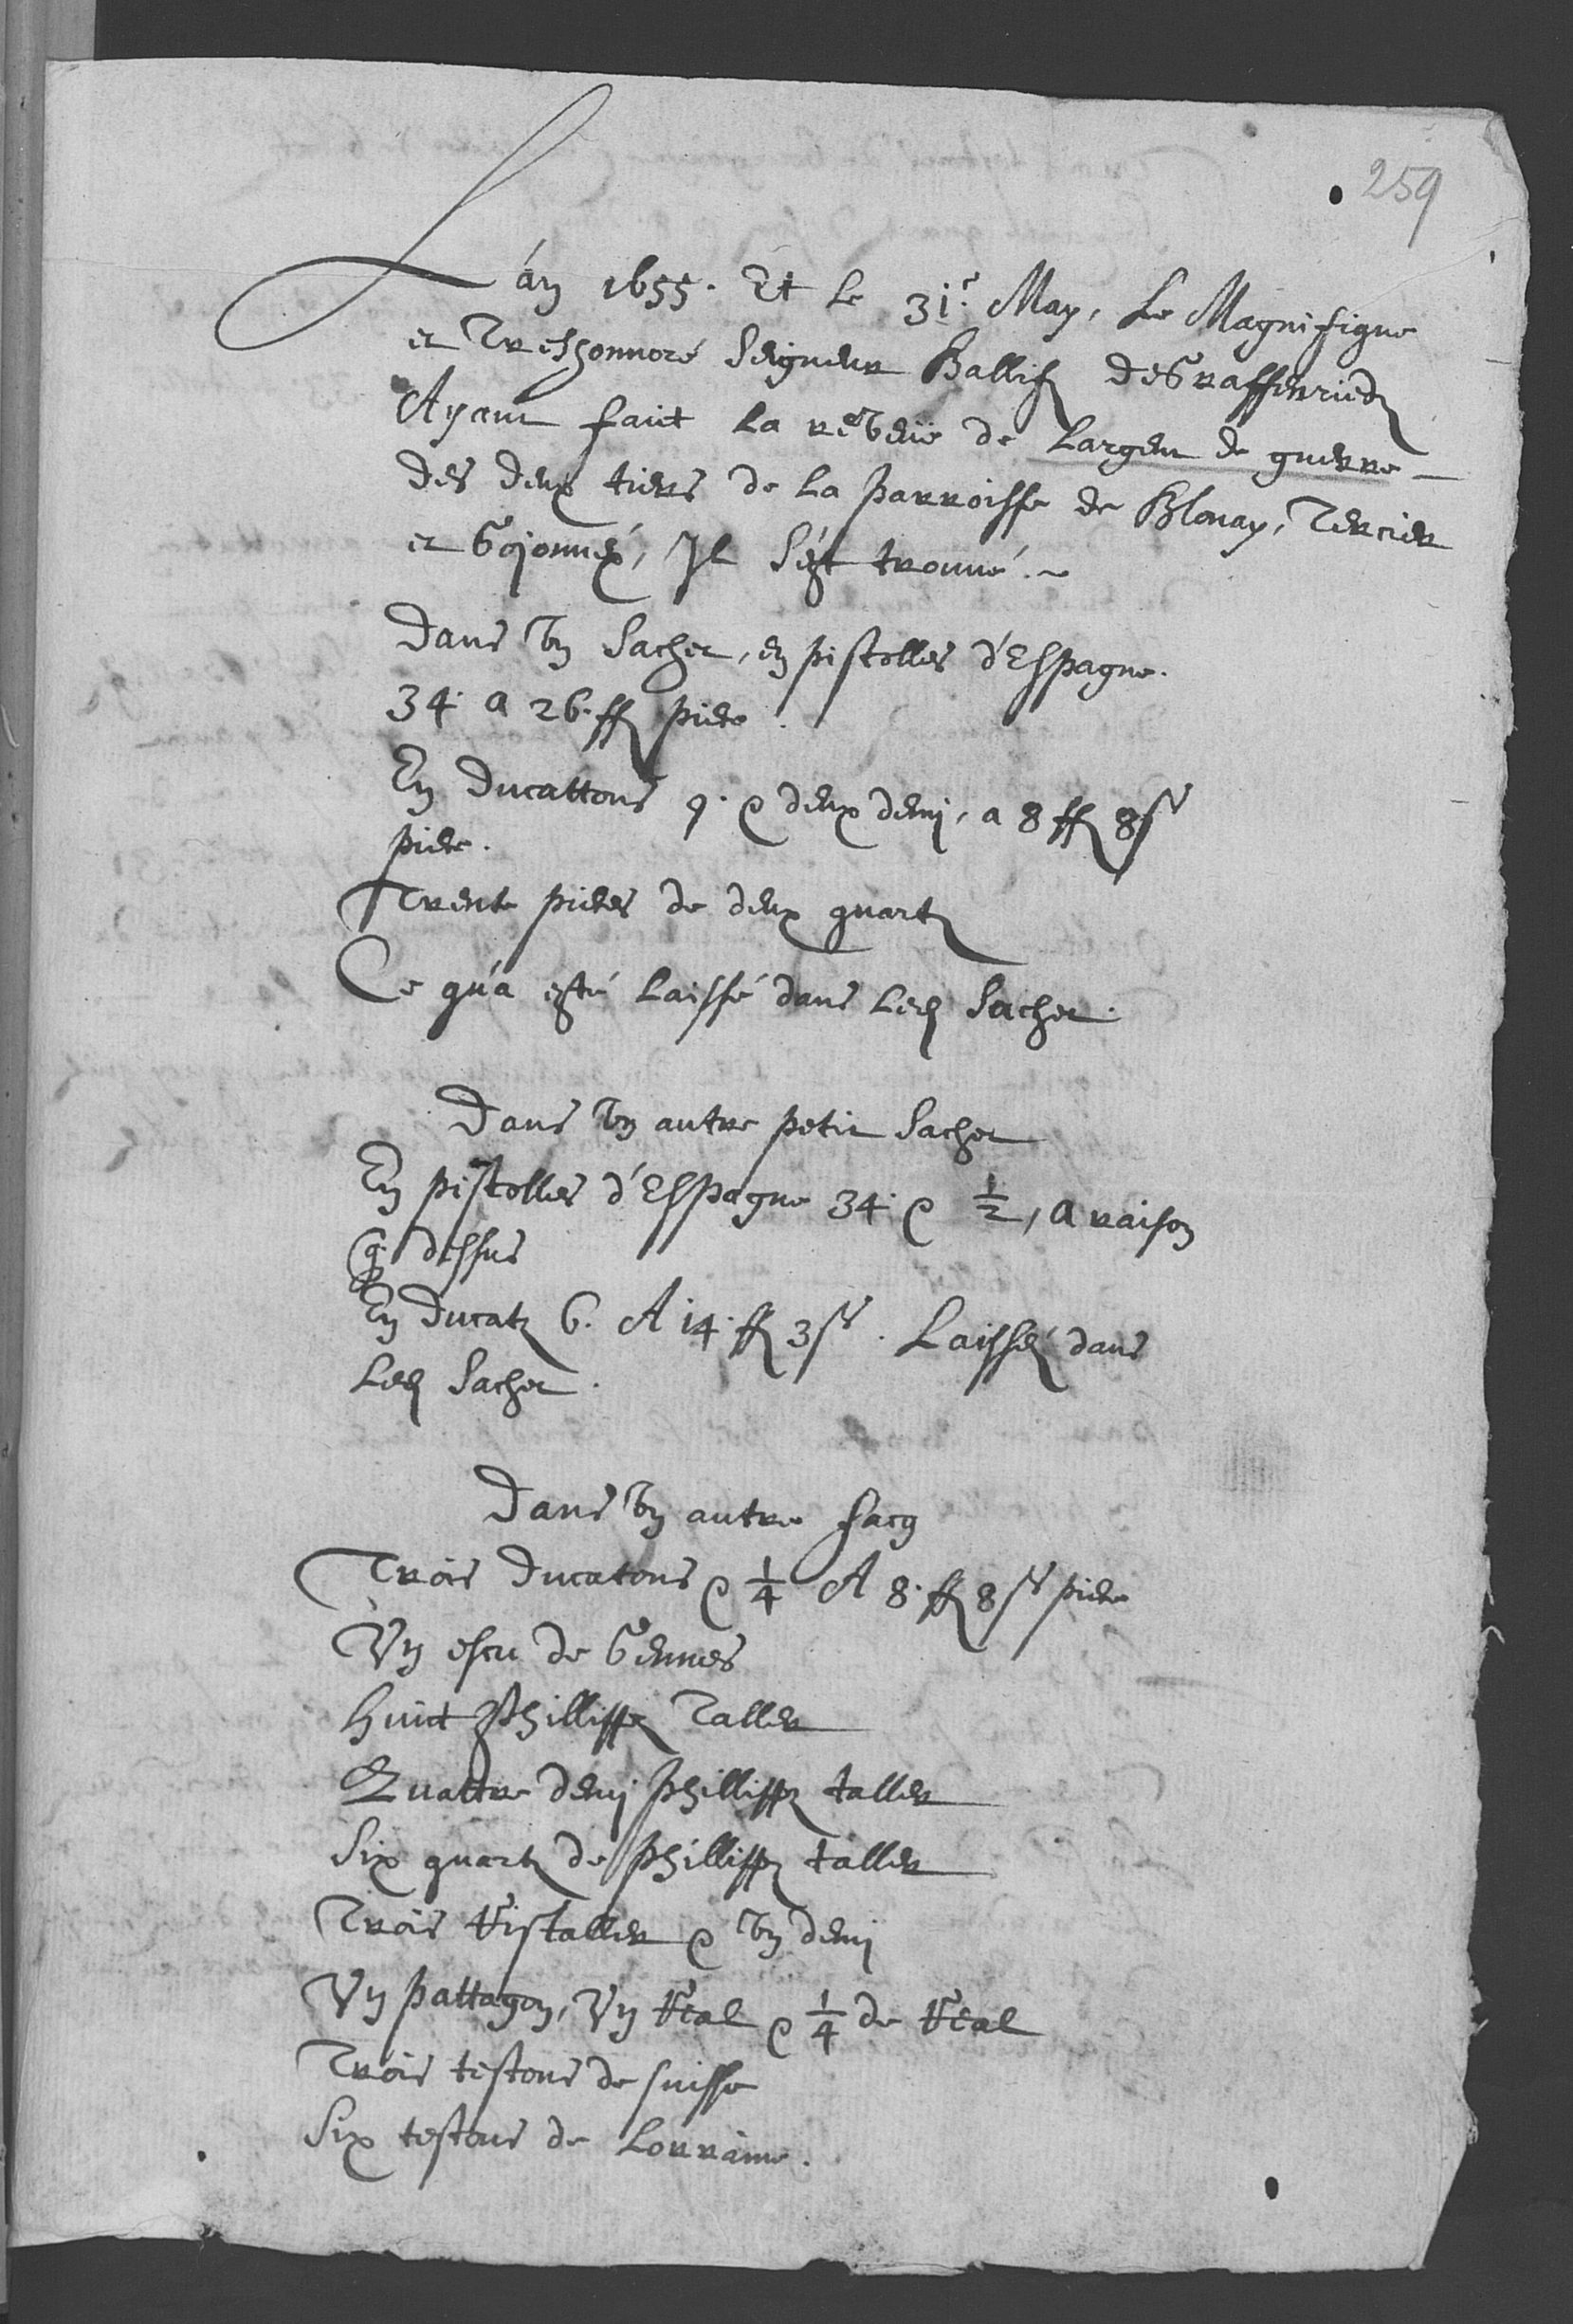 259
L'an 1655. Et le 31.e May, Le Magnifique
et Treshonnoré Seigneur Ballif de Graffenriedt
Ayant fait la reveüe de Largent de guerre
des deux tiers de la parroisse de Blonay, Tercier
et Cojonnex, Il s'est trouué.
Dans vn sachet, en pistolles d'Espagne.
34. a 26. ff piece.
En ducattons 9. e deux demi, a 8 ff 8 ss
piece.
Trente pieces de deux quartz
Ce qu'a esté laissé dans led sachet.
Dans vn autre petit sachet
En pistolles d'Espagne 34. e 1/2, a raison
q dessus
En ducatz 6. A 14. ff 3 ss. Laissé dans
led sachet.
Dans vn autre sacq
Trois ducatons e 1/4 A 8. ff 8 ss piece
Vn escu de Gennes
Huict Phillippe Taller
Quattre demi Phillippe taller
Six quartz de Phillippe taller
Trois Ristaller e vn demi
Vn pattagon, Vn Real e 1/4 de Real
Trois testons de suisse
Six testons de Lorraine.